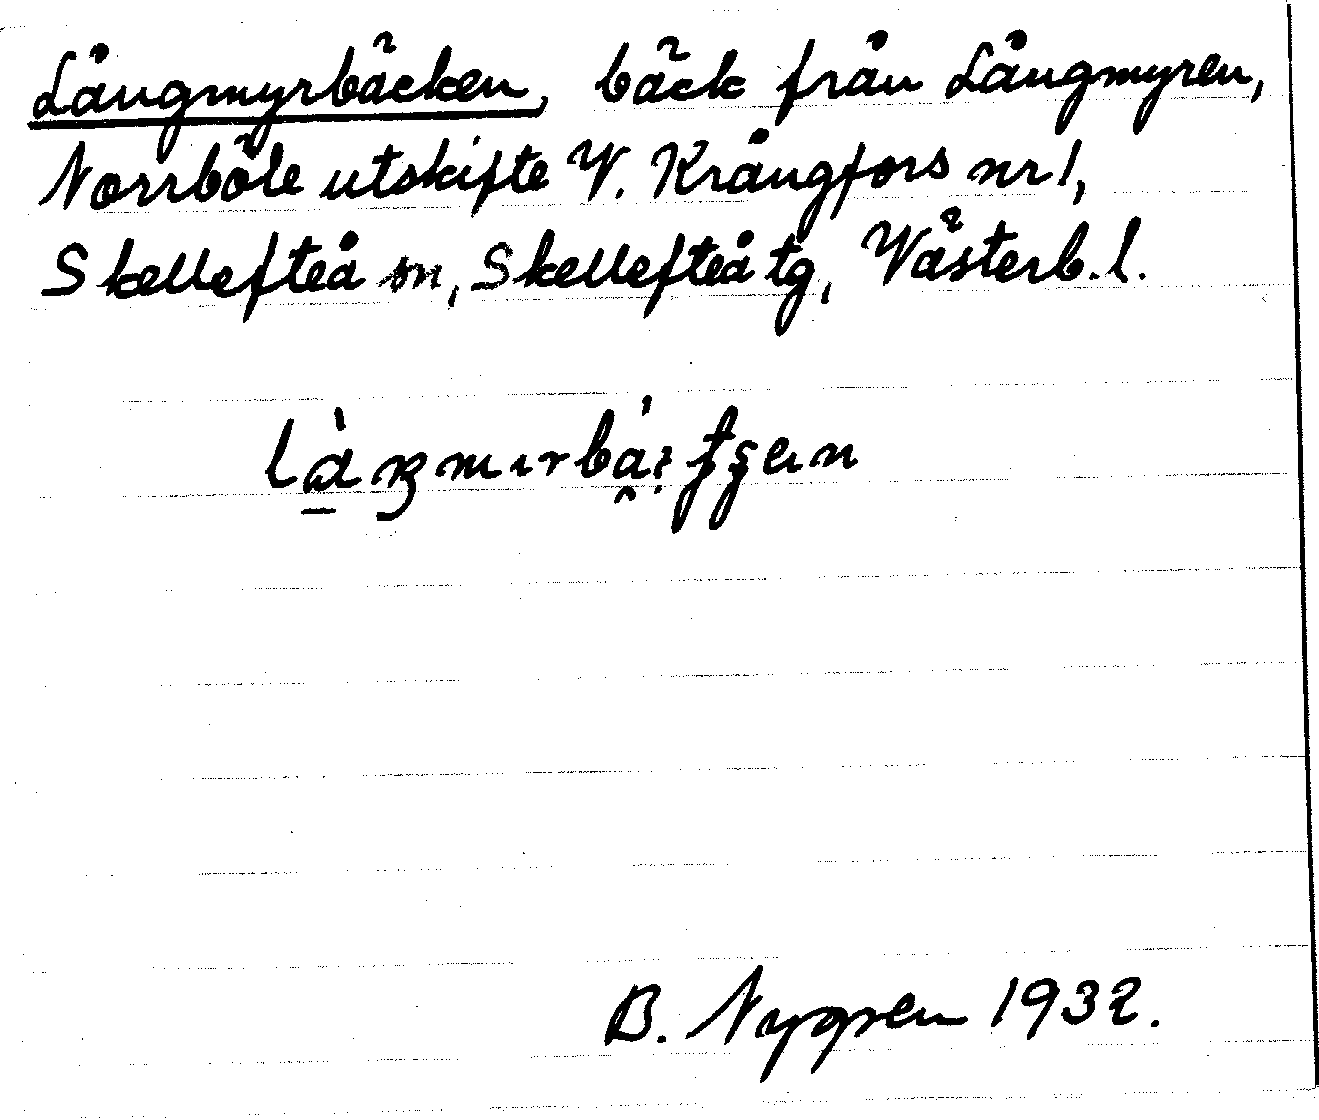 Långmyrbäcken, bäck från Långmyren,
Norrböle utskifte V. Krångfors nr 1,
Skellefteå sn, Skellefteå tg, Västerb. l.
B. Nygren 1932.